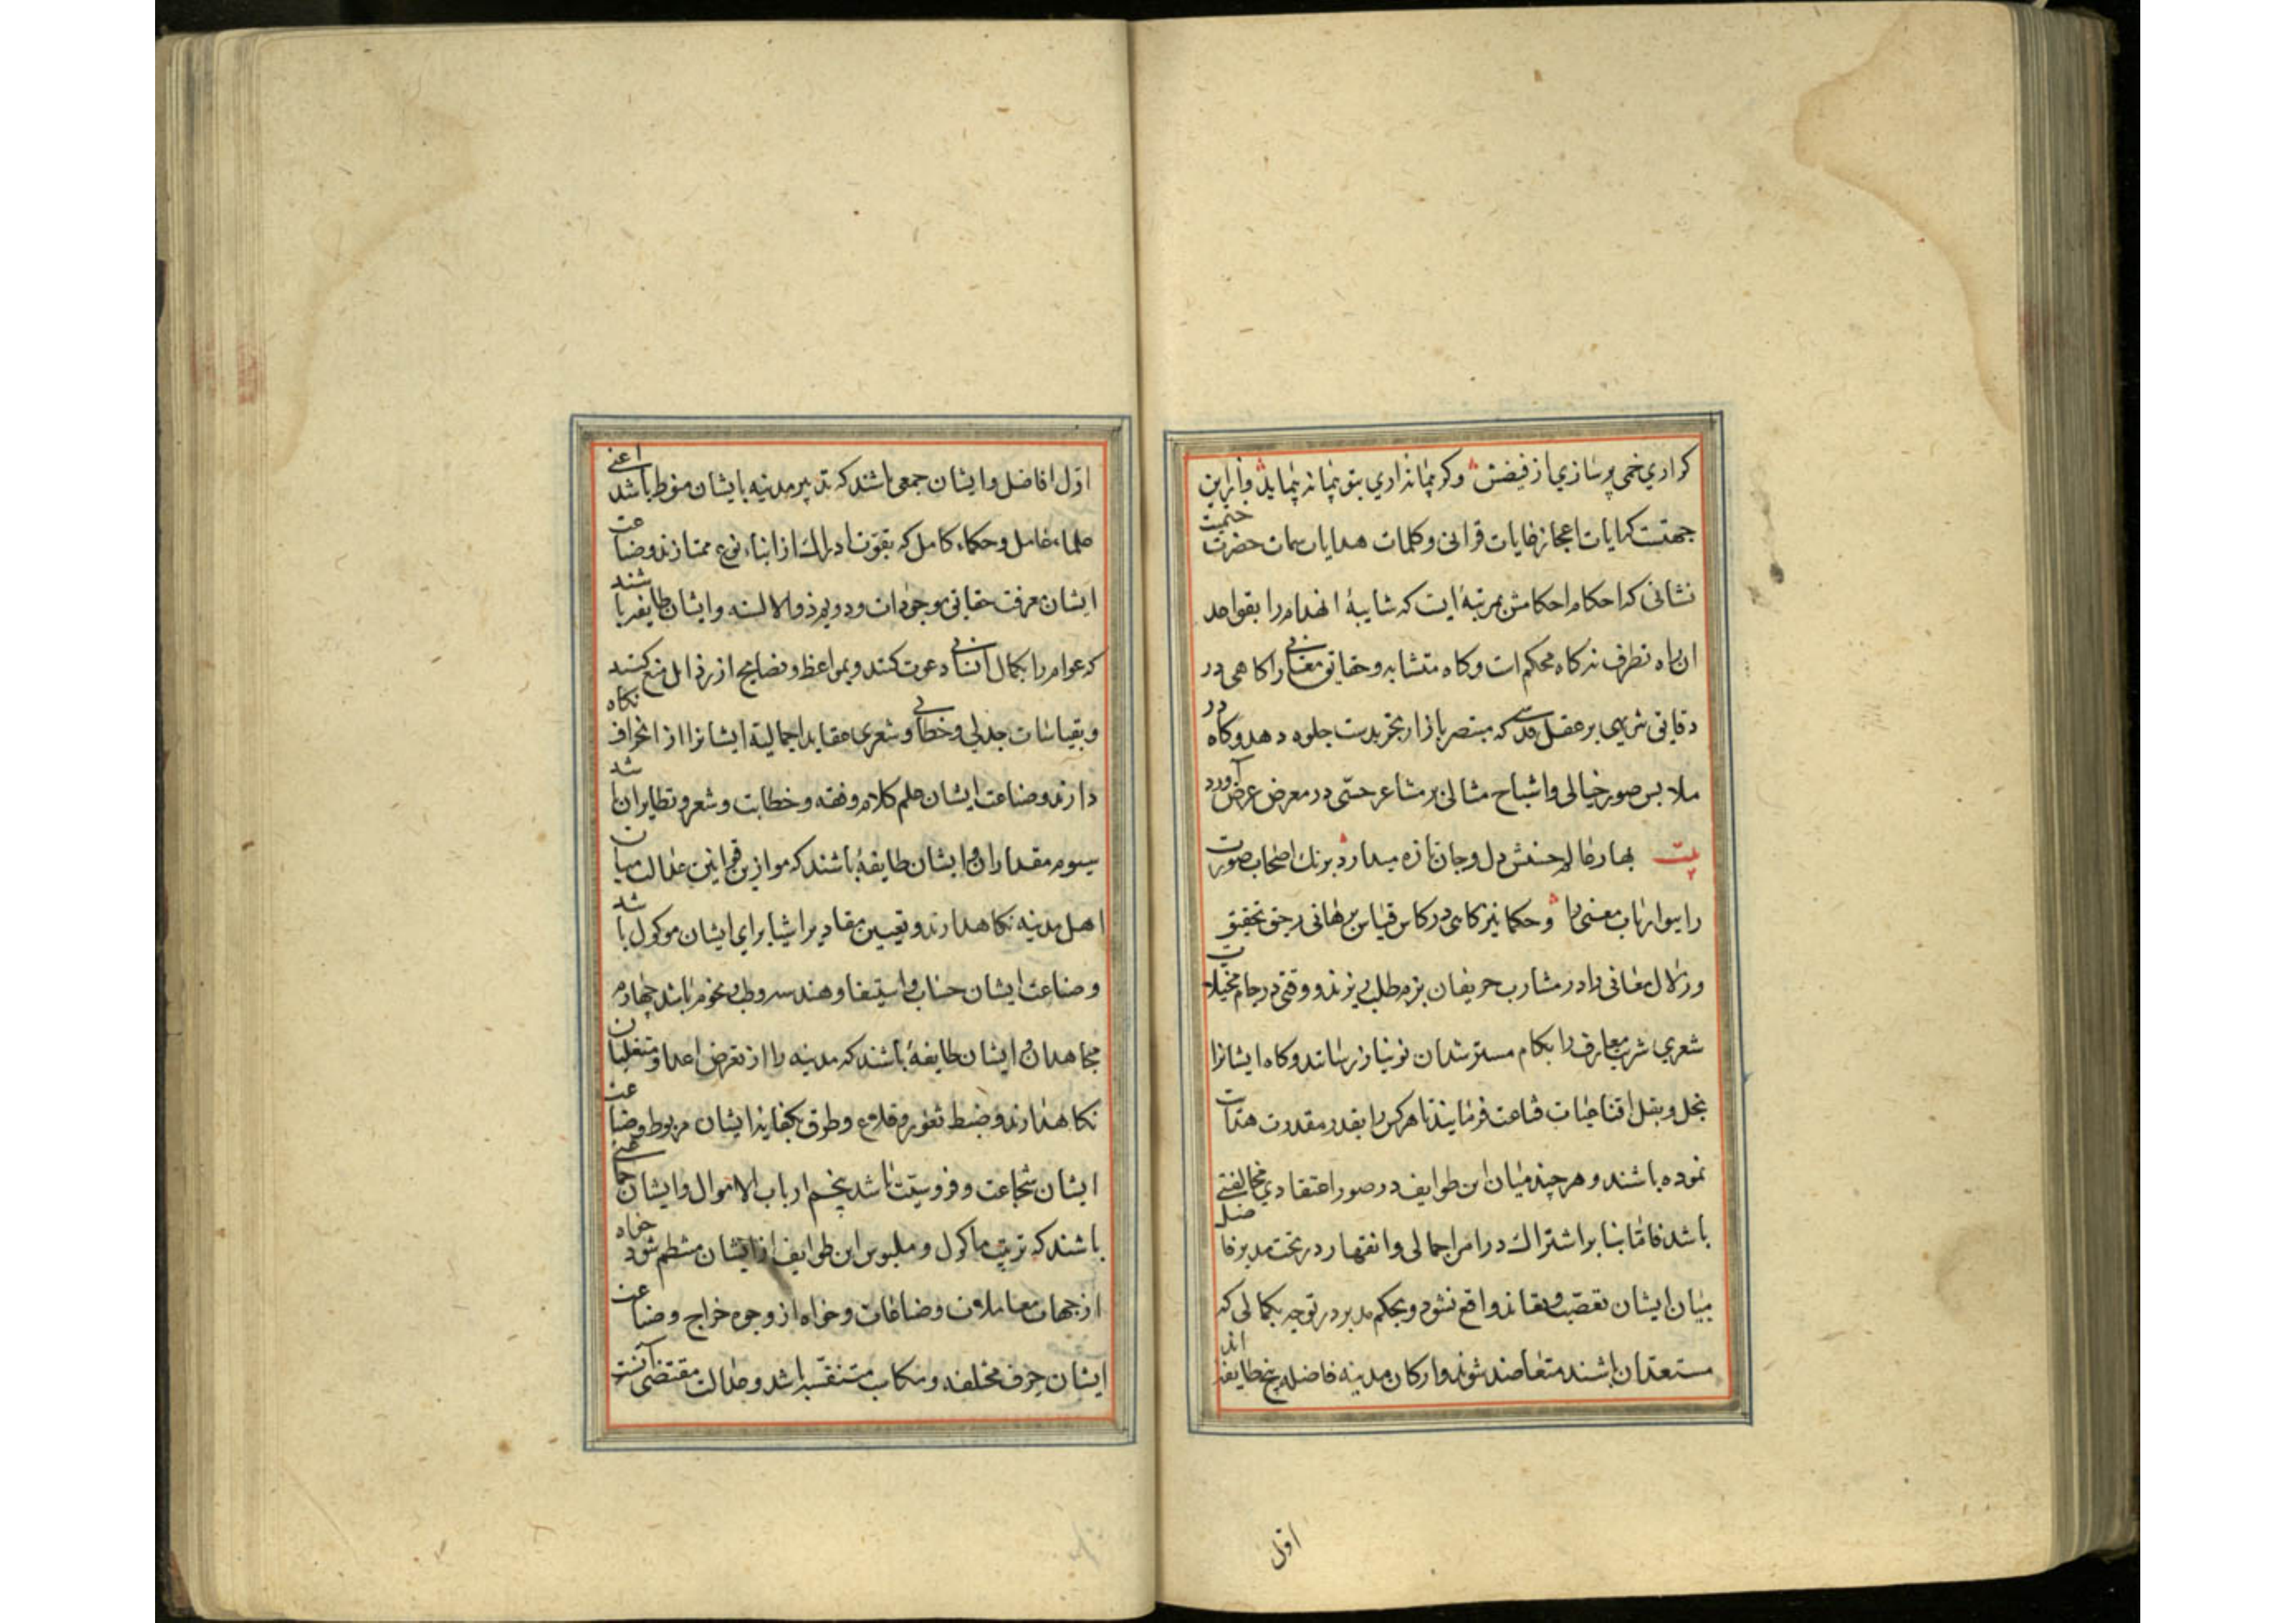 کر اری خمی پر سازی از فیضش وکر پیمانه اری بتو پیمانه پیماید وازین
جهتست که ایات اعجاز غایات قرانی وکلمات هدایات سمات حضرت ختمیت
نشانی که احکام احکامش بمرتبهٔ ایست که شایبهٔ انهدام را بقواعد
ان راه تطرف نه کاه محکم است وکاه متشابه وحقایق معانی را کاهی در
دقایق تنزیهی بر عقل قدسی که مبتصر بازار تجریدست جلوه دهد وکاه در
ملابس صور خیالی واشباح مثالی بر مشاعر حسی در معرض عرض آورد
بیت بهار عالم حسنش دل وجان تازه میدارد برنک اصحاب صورت
را ببو ارباب معنی را وحکما نیز کاهی در کاس قیاس برهانی رحیق تحقیق
وزلال معانی را در مشارب حریفان بزم طلب ریزند ووقتی در جام مخیلات
شعری شربت معارف را بکام مسترشدان نو نیاز رسانند وکاه ایشانرا
بخل وبقل اقناعیات قناعت فرمایند تا هرکس را بقدر مقدرت هدایت
نموده باشند وهر چند میان این طوایف در صور اعتقادی مخالفتی
باشد فاما بنابر اشتراک در امر اجمالی وانقهار در تحت مدبر فاضل
میان ایشان تعصب وتعاند واقع نشود وبحکم مدبر در توجه بکمالی که
مستعد ان باشند متعاضد شوند وارکان مدینه فاضله پنج طایفه اند
اول
اول افاضل وایشان جمعی باشند که تدبیر مدینه بایشان منوط باشد اعنی
علماء عامل وحکماء کامل که بقوت ادراک از ابناء نوع ممتازند وصناعت
ایشان معرفت حقایق موجودات ودویم ذوالالسنه وایشان طایفه باشند
که عوام را بکمال انسانی دعوت کنند وبمواعظ ونصایح از رذایل منع کنند
وبقیاسات جدلی وخطابی وشعری عقاید اجمالیه ایشانرا از انحراف نکاه
دارند وصناعت ایشان علم کلام وفقه وخطابت وشعر ونظایر ان باشد
سیوم مقدران وایشان طایفهٔ باشند که موازین قوانین عدالت میان
اهل مدینه نکاهدارند وتعیین مقادیر اشیا برای ایشان موکول باشد
وصناعت ایشان حساب واستیفا وهندسه وطب ونجوم باشد چهارم
مجاهدان وایشان طایفهٔ باشند که مدینه را از تعرض اعدا ومتغلبان
نکاهدارند وضبط ثغور وقلاع وطرق بکفایة ایشان مربوط وصناعت
ایشان شجاعت وفروسیت باشد پنجم ارباب الاموال وایشان جماعتی
باشند که ترتیب ماکول وملبوس این طوایف از ایشان منتظم شود خواه
از جهات معاملات وصناعات وخواه از وجوه خراج وصناعت
ایشان حرف مختلفه ومکاسب متنفسه باشد وعدالت مقتضی آنست